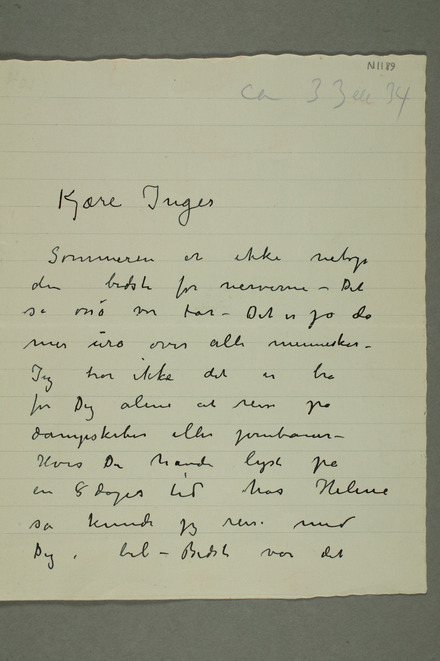 N1189
ca 3 3 ell 34
Kjære Inger
Sommeren er ikke netop
den bedste for nerverne – Det
sa også vor Far – Det er jo da
mer uro over alle mennesker –
Jeg tror ikke det er bra
for Dig alene at reise på
dampskibe eller jernbaner –
Hvis Du havde lyst på
en 8 dages tid hos Helene
så kunde jeg reise med
Dig i bil – Bedst var det